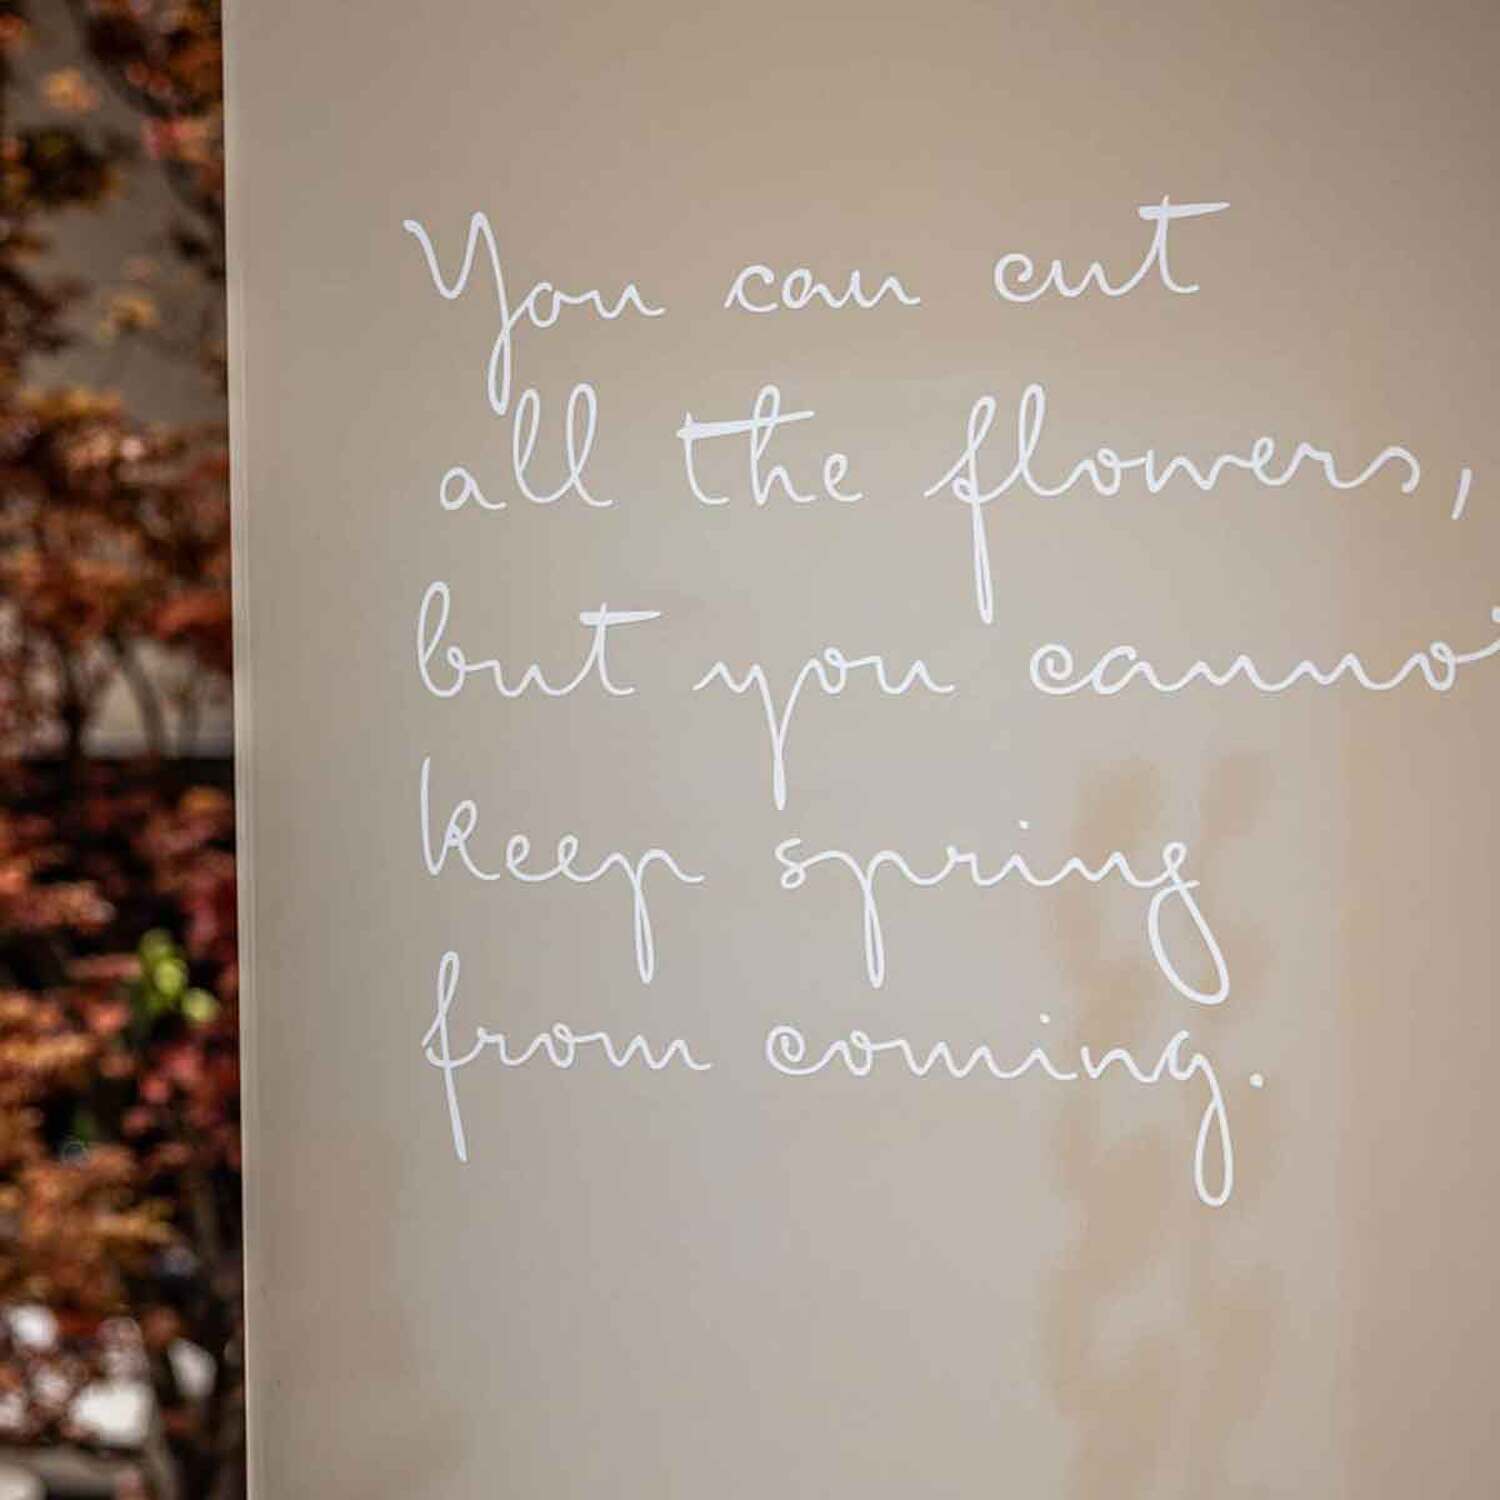 You can cut
all the flowers,
but you cannot
keep spring
from coming.